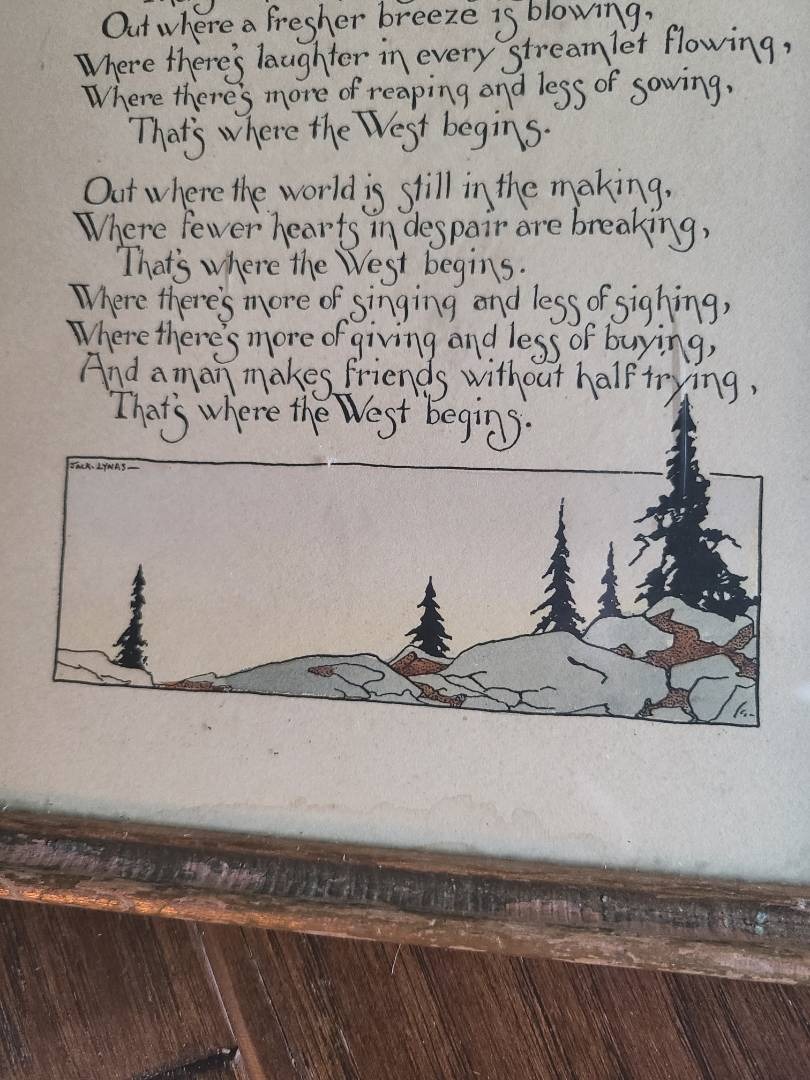 Out where a fresher breeze is blowing,
Where there's laughter in every streamlet flowing,
Where there's more of reaping and less of sowing,
That's where the West begins.
Out where the world is still in the making,
Where fewer hearts in despair are breaking,
That's where the West begins.
Where there's more of singing and less of sighing,
Where there's more of giving and less of buying,
And a man makes friends without half trying,
That's where the West begins.
JACK. LYNAS—